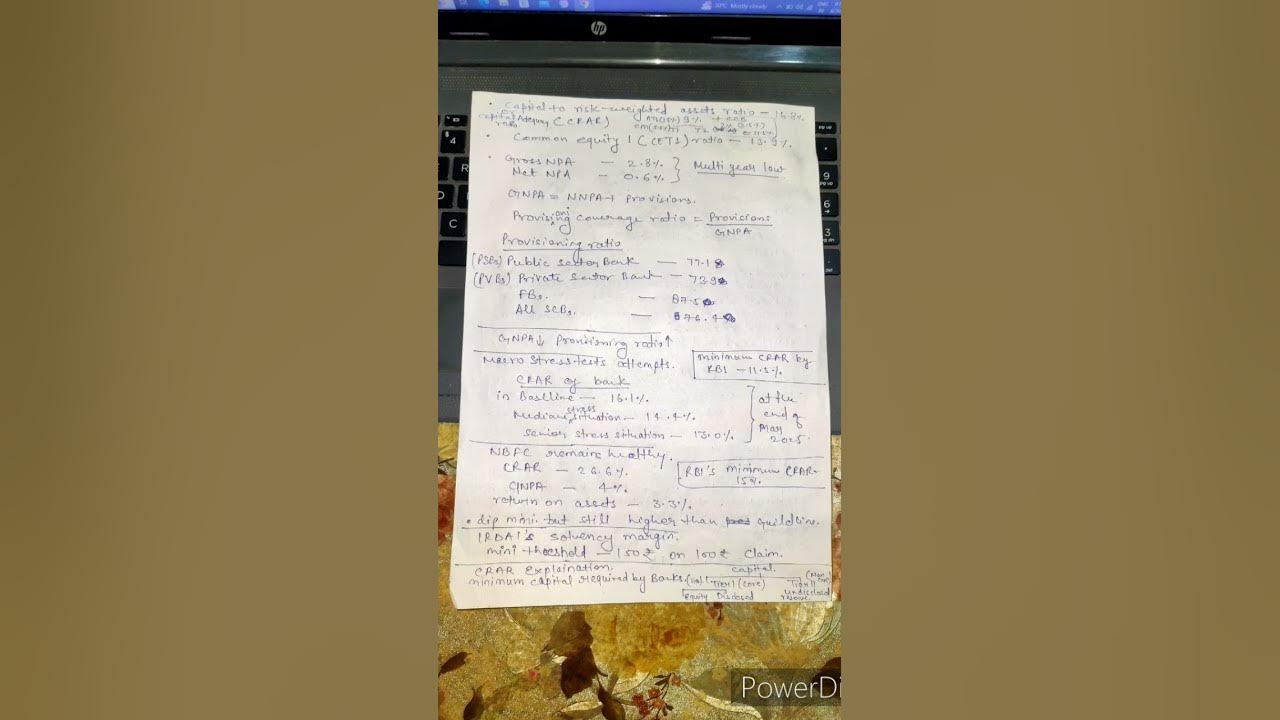 30°C Mostly cloudy
hp
• Capital to risk-weighted assets ratio – 16.8%
or capital Adequacy ratio (CRAR) 9% + CCB
• Common equity 1 (CET1) ratio – 13.9%.
• Gross NPA — 2.8% } Multi year low
Net NPA — 0.6%.
GNPA = NNPA + Provisions.
Provisioning Coverage ratio = Provisions
GNPA
Provisioning ratio
(PSBs) Public sector Bank — 77.1
(PVBs) Private Sector Bank — 73.9
FBs. — 87.5
All SCBs. — 76.4%
GNPA↓ Provisioning ratio↑
Macro stress tests attempts.
minimum CRAR by
RBI – 11.5%
CRAR of bank
in Baseline – 16.1%.
Medium stress situation – 14.4%.
senior stress situation – 13.0%.
at the
end of
Mar
2025.
NBFC remains healthy.
CRAR — 26.6%.
RBI's minimum CRAR–
15%.
GNPA — 4%.
return on assets – 3.3%.
• dip mini. but still higher than guildline.
IRDAI's solvency margin.
mini threshold – 150₹ on 100₹ claim.
CRAR Explaination.
capital.
minimum capital required by Banks. Tier 1 (core) Tier II
Equity Disclosed undisclosed reserve.
PowerDi